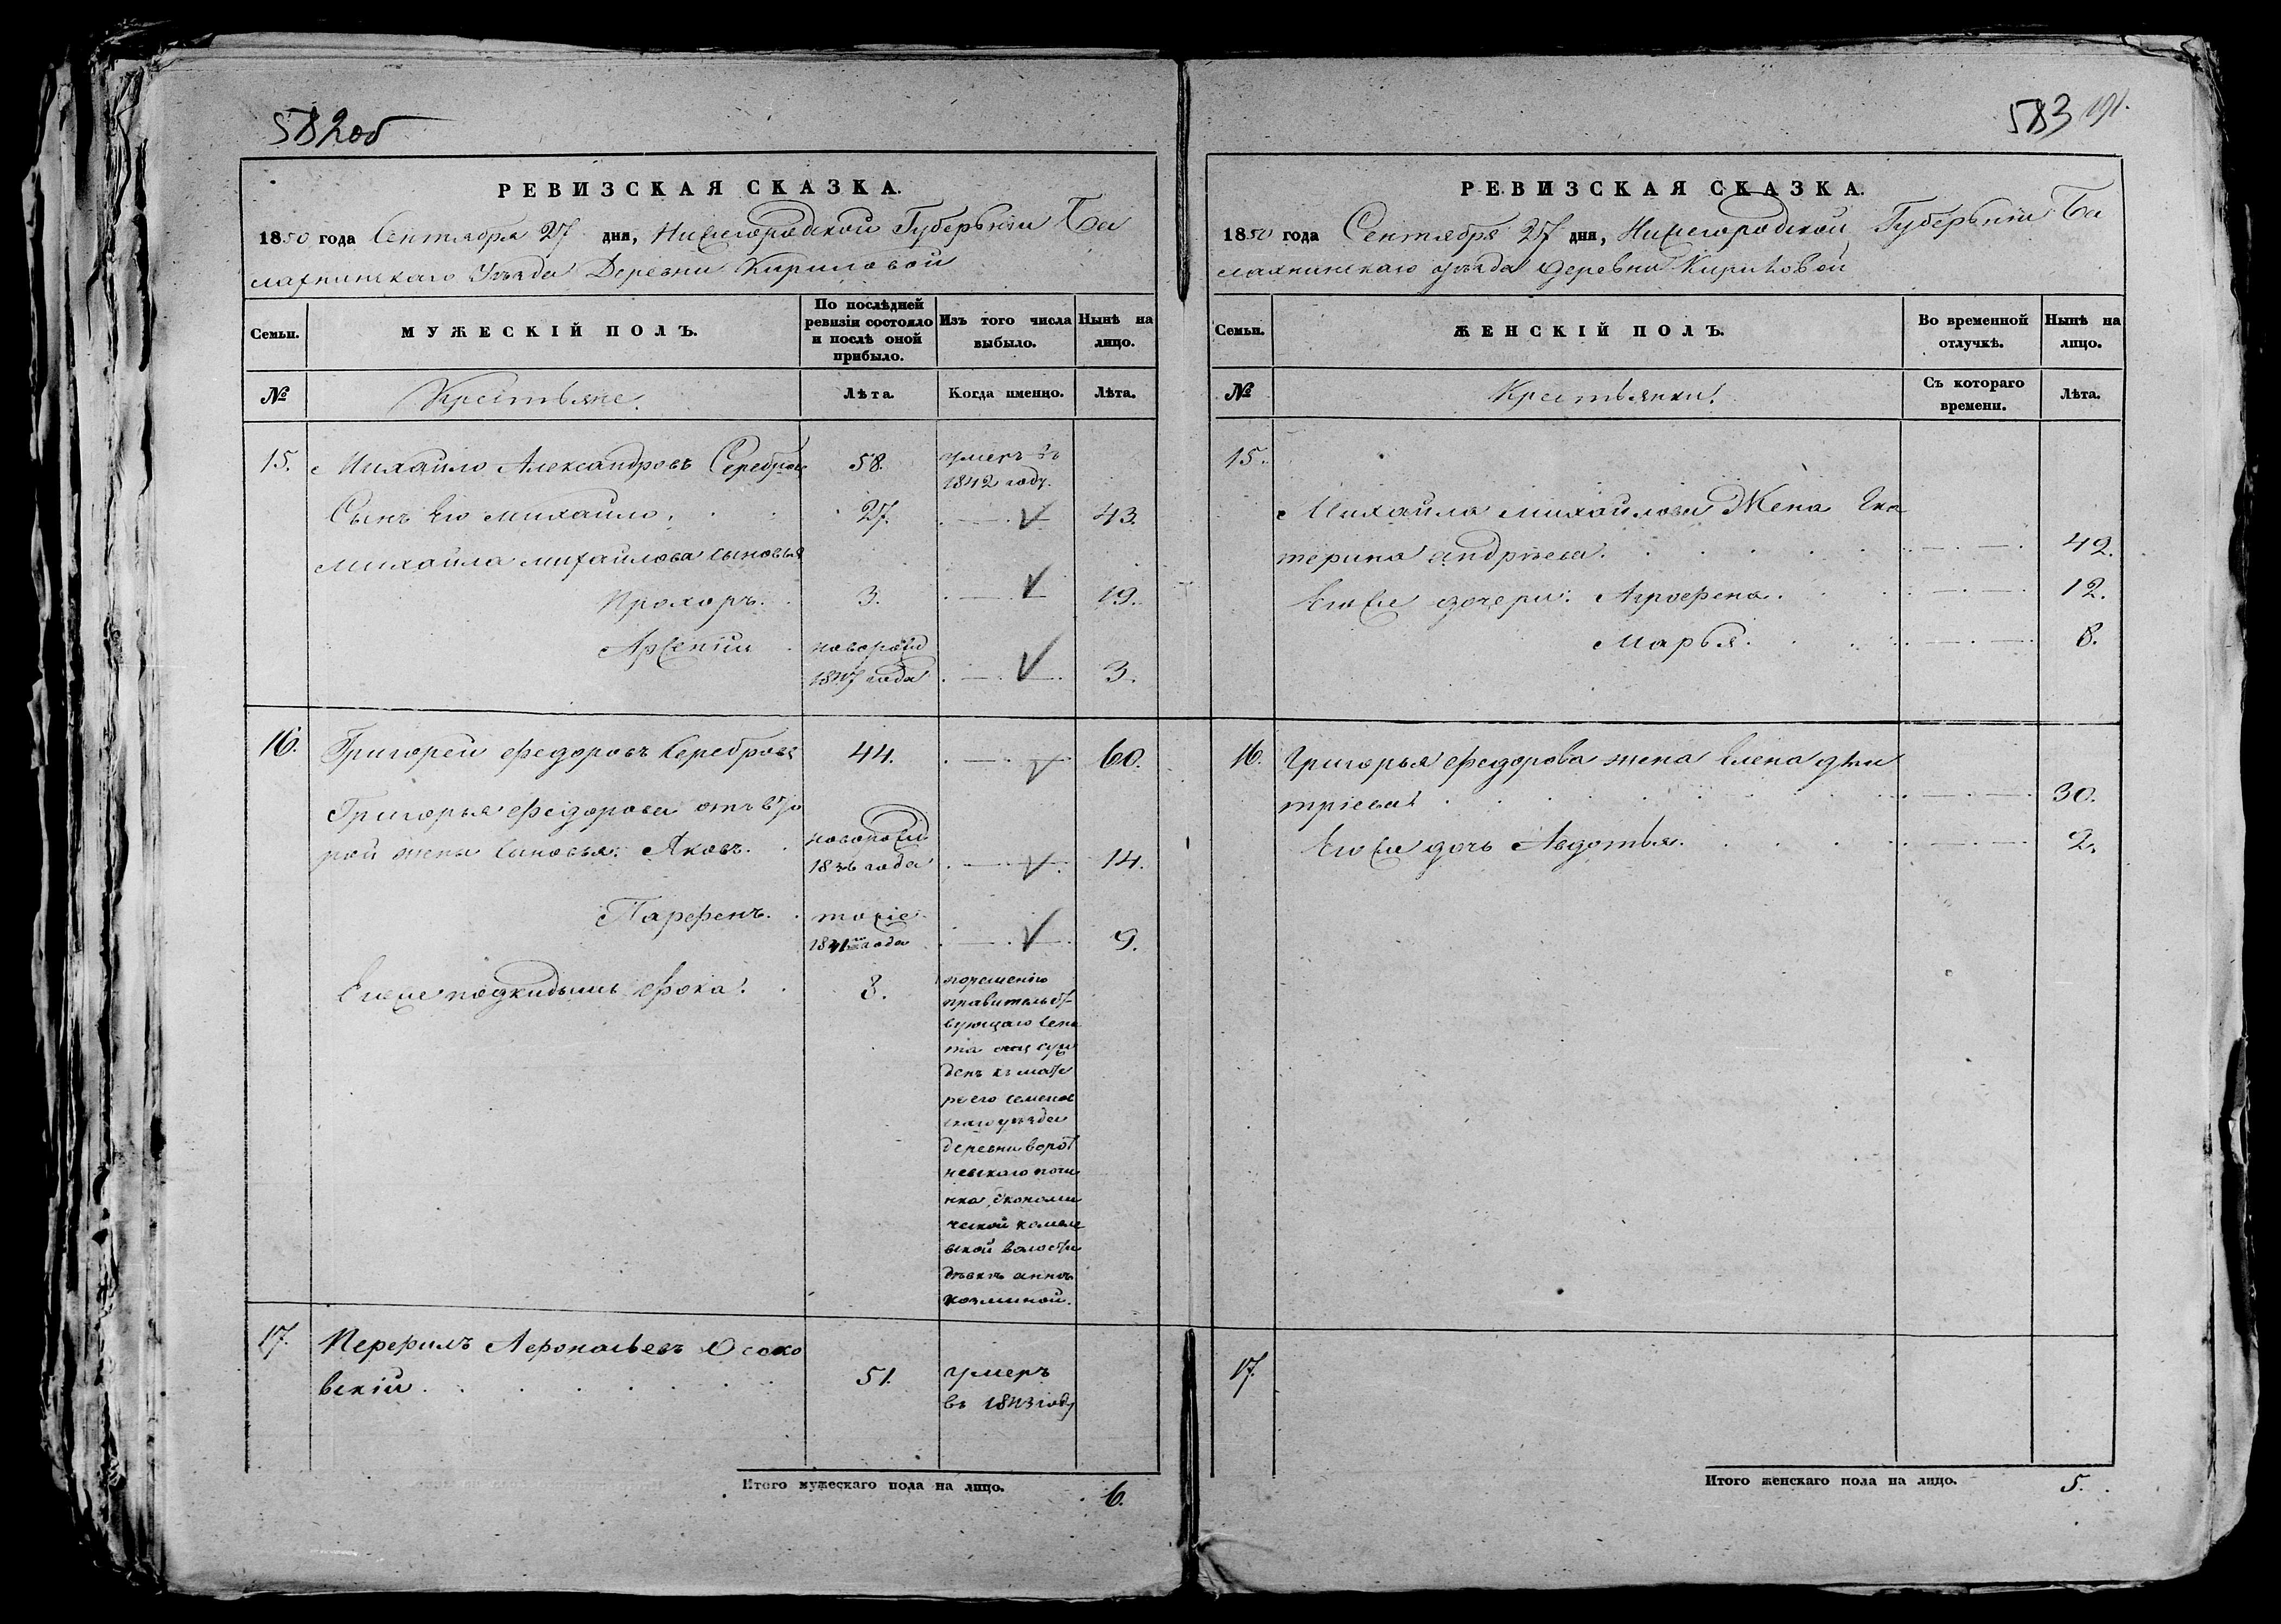 582об
РЕВИЗСКАЯ СКАЗКА.
1850 года Сентября 27 дня, Нижегородской Губерьнiи Ба
лахнинскаго Уѣзда Деревни Кириловой
Семьи.
МУЖЕСКІЙ ПОЛЪ.
По послѣдней ревизіи состояло и послѣ оной прибыло.
Изъ того числа выбыло.
Нынѣ на лицо.
№
Крестьяне.
Лѣта.
Когда именно.
Лѣта.
15. Михайло Александровъ Серебровъ 58. умеръ въ
1842 году.
Сынъ Его михайло. 27. 43.
Михайла михайлова сыновья
Прохоръ. 3. 19.
Арсенiй новорожд
1847 года 3.
16. Григорей федоровъ серебровъ 44. 60.
Григорья федорова отъ вто
рой жены сыновья: Яковъ. новорожд
1836 года 14.
Парфенъ. тоже
1841 года 9.
Егоже подкидышъ фока. 8. порешенiю
правительст
вующаго сена
та отсуж
денъ къ мате
ре его семенов
скаго уѣзда
деревни ворот
невскаго почи
нка, Економи
ческой
вской волости
дѣвкѣ аннѣ
козминой.
17. Перфилъ Афонасьевъ Осоко
вскiй. 51. умеръ
въ 1843 году
Итого мужескаго пола на лицо. 6.
583 191.
РЕВИЗСКАЯ СКАЗКА.
1850 года Сентября 27 дня, Нижегородской Губерьнiи Ба
лахнинскаго уѣзда деревни Кириловой
Семьи.
ЖЕНСКІЙ ПОЛЪ.
Во временной отлучкѣ.
Нынѣ на лицо.
№
Крестьянки.
Съ котораго времени.
Лѣта.
15.
Михайла михайлова Жена Ека
терина андрѣева. 42.
Егоже дочери: Агрофена. 12.
Марья. 8.
16. Григорья федорова жена Елена дми
трiева 30.
Егоже дочь Авдотья. 2.
17.
Итого женскаго пола на лицо. 5.